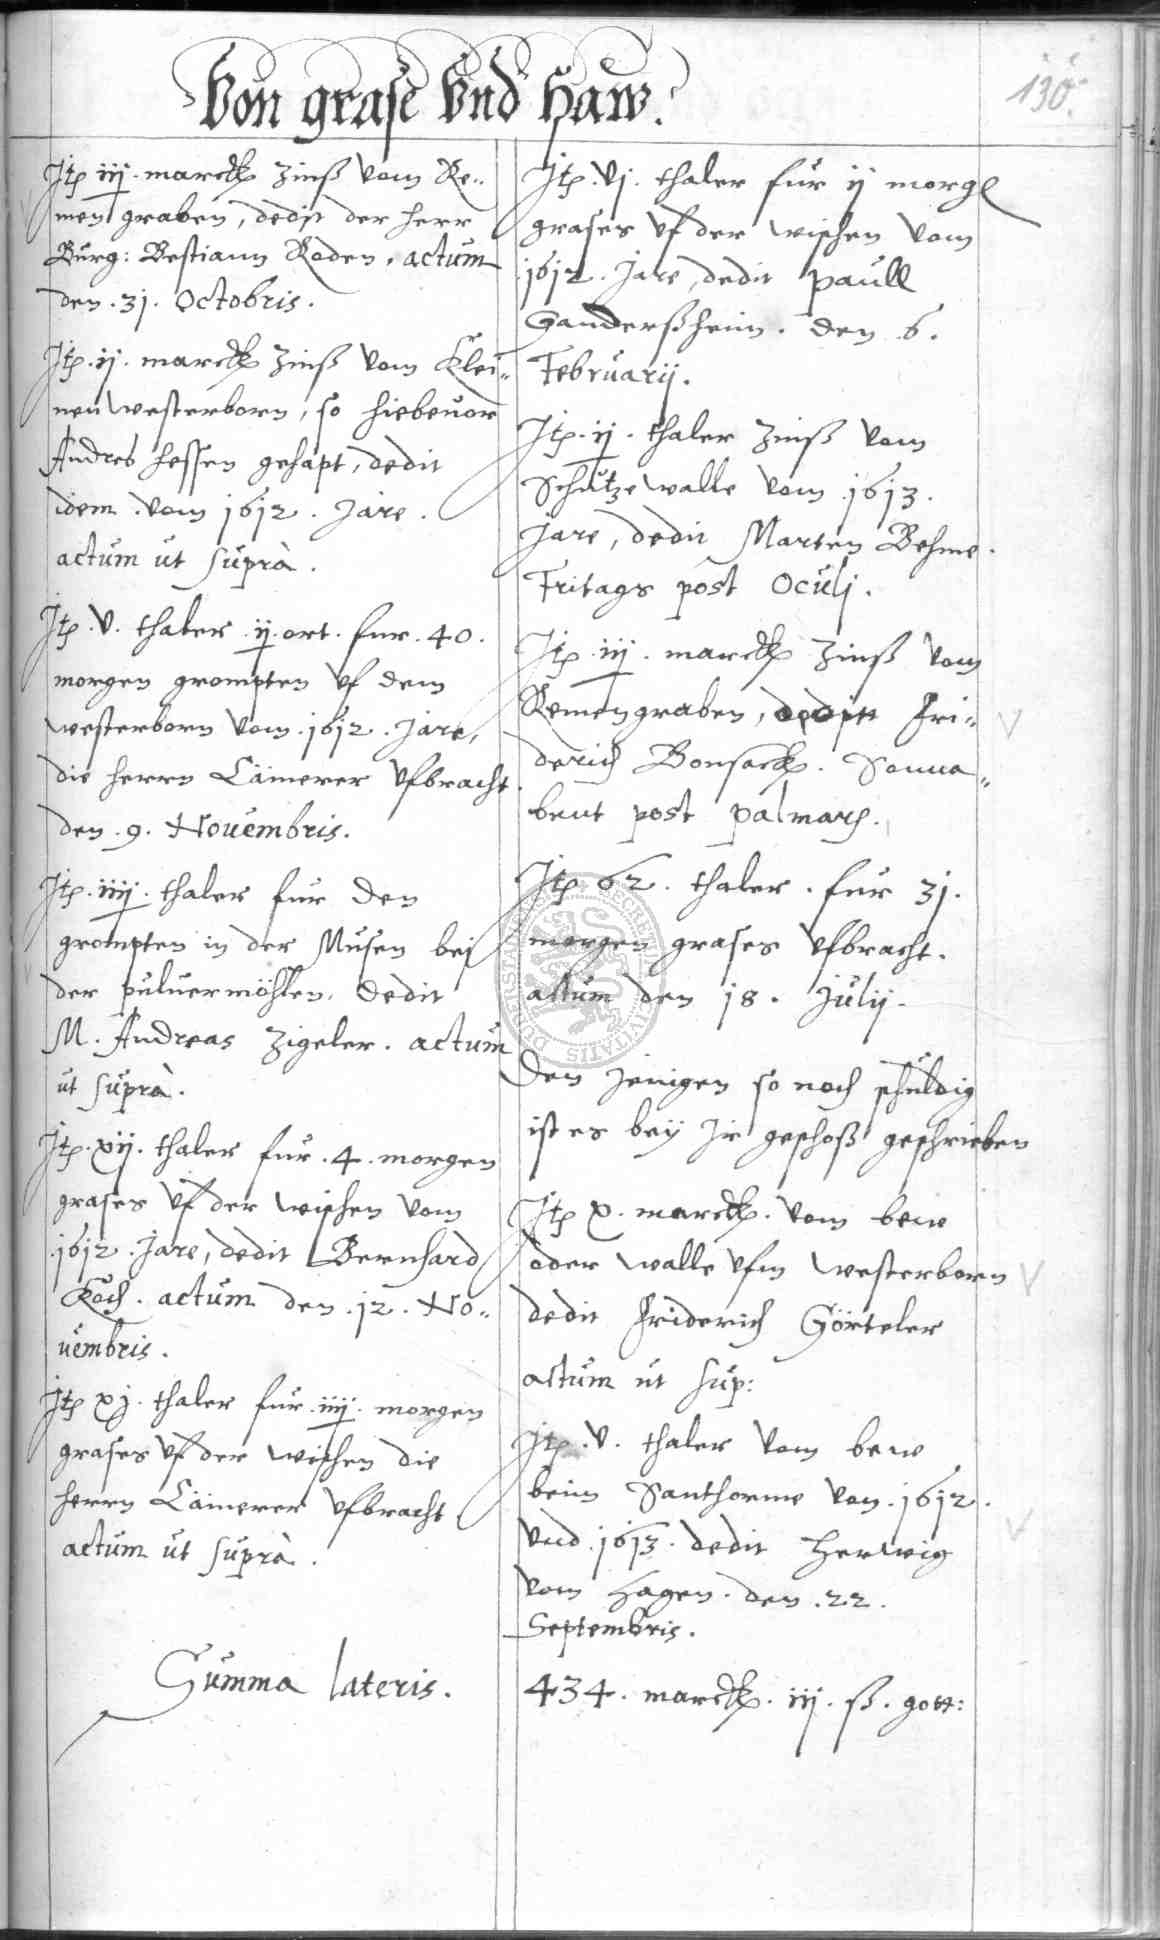 Von grase Vnd Haw.
130.
Itp iij. marck zinß vom Re-
men graben, dedit der herr
Burg: Bestiann Roden. actum
den. 31. Octobris.
Itp. ij. marck zinß vom Klei-
nen westerborn, so hiebeuor
Andres hessen gehapt, dedit
idem. vom 1612. Jare.
actum ut suprà.
Itp. V. thaler ij. ort. fur. 40.
morgen grompten Vf dem
westerborn vom. 1612. Jare,
die herrn Cämerer Vfbracht.
den. 9. Nouembris.
Itp. iiij. thaler fur den
grompten in der Musen bej
der puluermöhlen. dedit
M. Andreas Zigeler. actum
ut suprà.
Itp. xij. thaler fur. 4. morgen
grases Vf der wischen vom
1612. Jare, dedit Bernhard
Koch. actum den. 12. No-
uembris.
Itp xj. thaler fur. iiij. morgen
grases Vf der wischen die
herrn Cämerer Vfbracht
actum ut suprà.
Summa lateris.
Itp. Vj. thaler fur ij morg
grases Vf der wischen vom
1612. Jare, dedit Paull
Ganderßheim. den 6.
Februarij.
Itp. ij. thaler zinß vom
Schutze walle vom. 1613.
Jare, dedit Marten Behme.
Fritags post Oculj.
Itp. iij. marck zinß vom
Remengraben, dedit Fri-
derich Bonsack. Sonna-
bent post palmarum.
Itp 62. thaler. fur 31.
morgen grases Vfbracht.
actum den 18. Julij.
Den jenigen so noch schuldig
ist es bey Jr geschoß geschrieben
Itp x. marck. vom bew
oder walle Vfm westerborn
dedit Friderich Görteler
actum ut sup:
Itp. V. thaler vom bew
beim Santhorme von. 1612.
vnd. 1613. dedit Herwig
vom Hagen. den. 22.
Septembris.
434. marck. iij. ß. gott:
SECRETU CIVITATIS